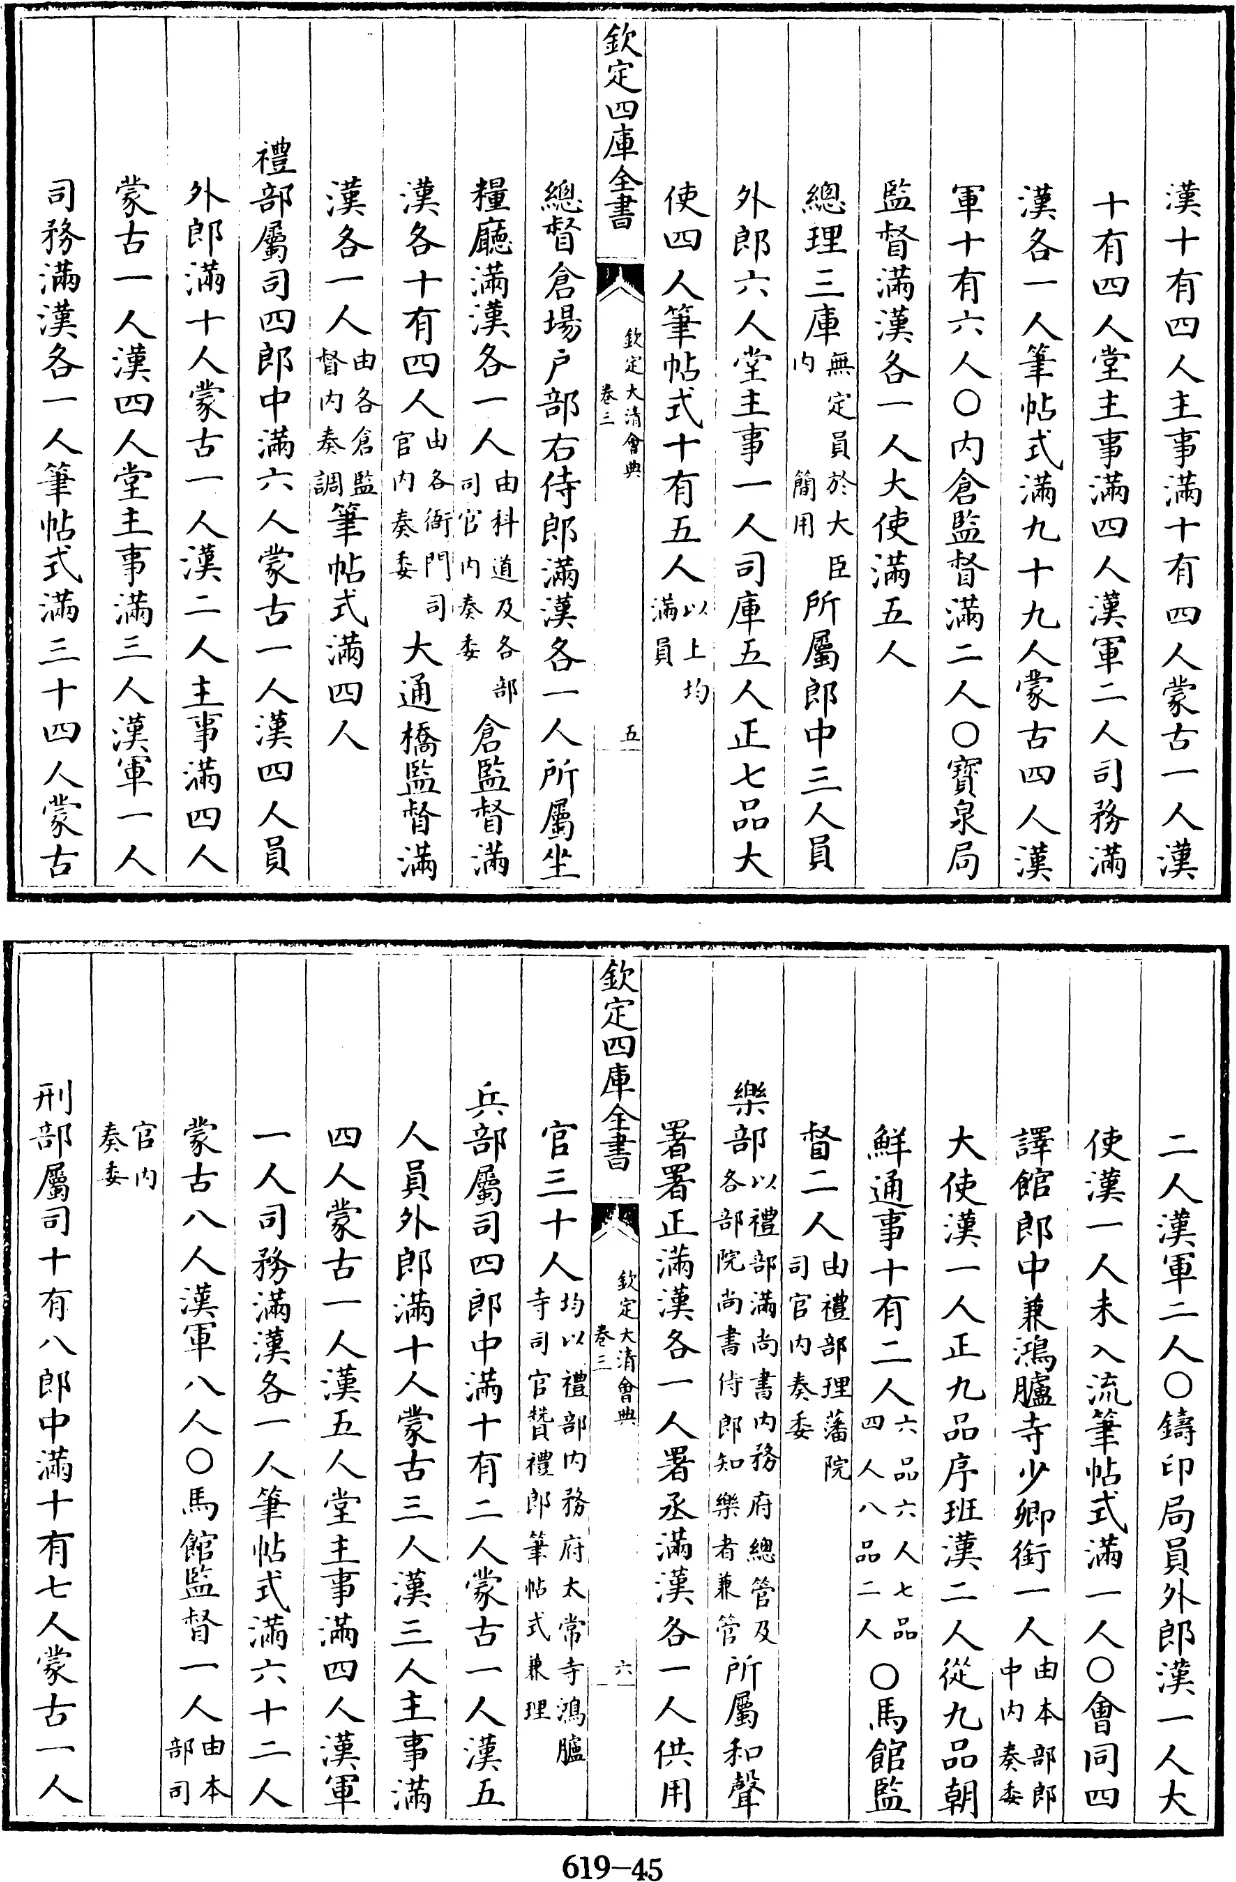 漢十有四人主事滿十有四人蒙古一人漢
十有四人堂主事滿四人漢軍二人司務滿
漢各一人筆帖式滿九十九人蒙古四人漢
軍十有六人○內倉監督滿二人○寶泉局
監督滿漢各一人大使滿五人
總理三庫無定員於大臣內簡用所屬郎中三人員
外郎六人堂主事一人司庫五人正七品大
使四人筆帖式十有五人以上均滿員
欽定四庫全書 欽定大清會典 卷三 五
總督倉場户部右侍郎滿漢各一人所屬坐
糧廳滿漢各一人由科道及各部司官內奏委倉監督滿
漢各十有四人由各衙門司官內奏委大通橋監督滿
漢各一人由各倉監督內奏調筆帖式滿四人
禮部屬司四郎中滿六人蒙古一人漢四人員
外郎滿十人蒙古一人漢二人主事滿四人
蒙古一人漢四人堂主事滿三人漢軍一人
司務滿漢各一人筆帖式滿三十四人蒙古
二人漢軍二人○鑄印局員外郎漢一人大
使漢一人未入流筆帖式滿一人○會同四
譯館郎中兼鴻臚寺少卿銜一人由本部郎中內奏委
大使漢一人正九品序班漢二人從九品朝
鮮通事十有二人六品六人七品四人八品二人○馬館監
督二人由禮部理藩院司官內奏委
樂部以禮部滿尚書內務府總管及各部院尚書侍郎知樂者兼管所屬和聲
署署正滿漢各一人署丞滿漢各一人供用
欽定四庫全書 欽定大清會典 卷三 六
官三十人均以禮部內務府太常寺鴻臚寺司官贊禮郎筆帖式兼理
兵部屬司四郎中滿十有二人蒙古一人漢五
人員外郎滿十人蒙古三人漢三人主事滿
四人蒙古一人漢五人堂主事滿四人漢軍
一人司務滿漢各一人筆帖式滿六十二人
蒙古八人漢軍八人○馬館監督一人由本部司
官內奏委
刑部屬司十有八郎中滿十有七人蒙古一人
619-45